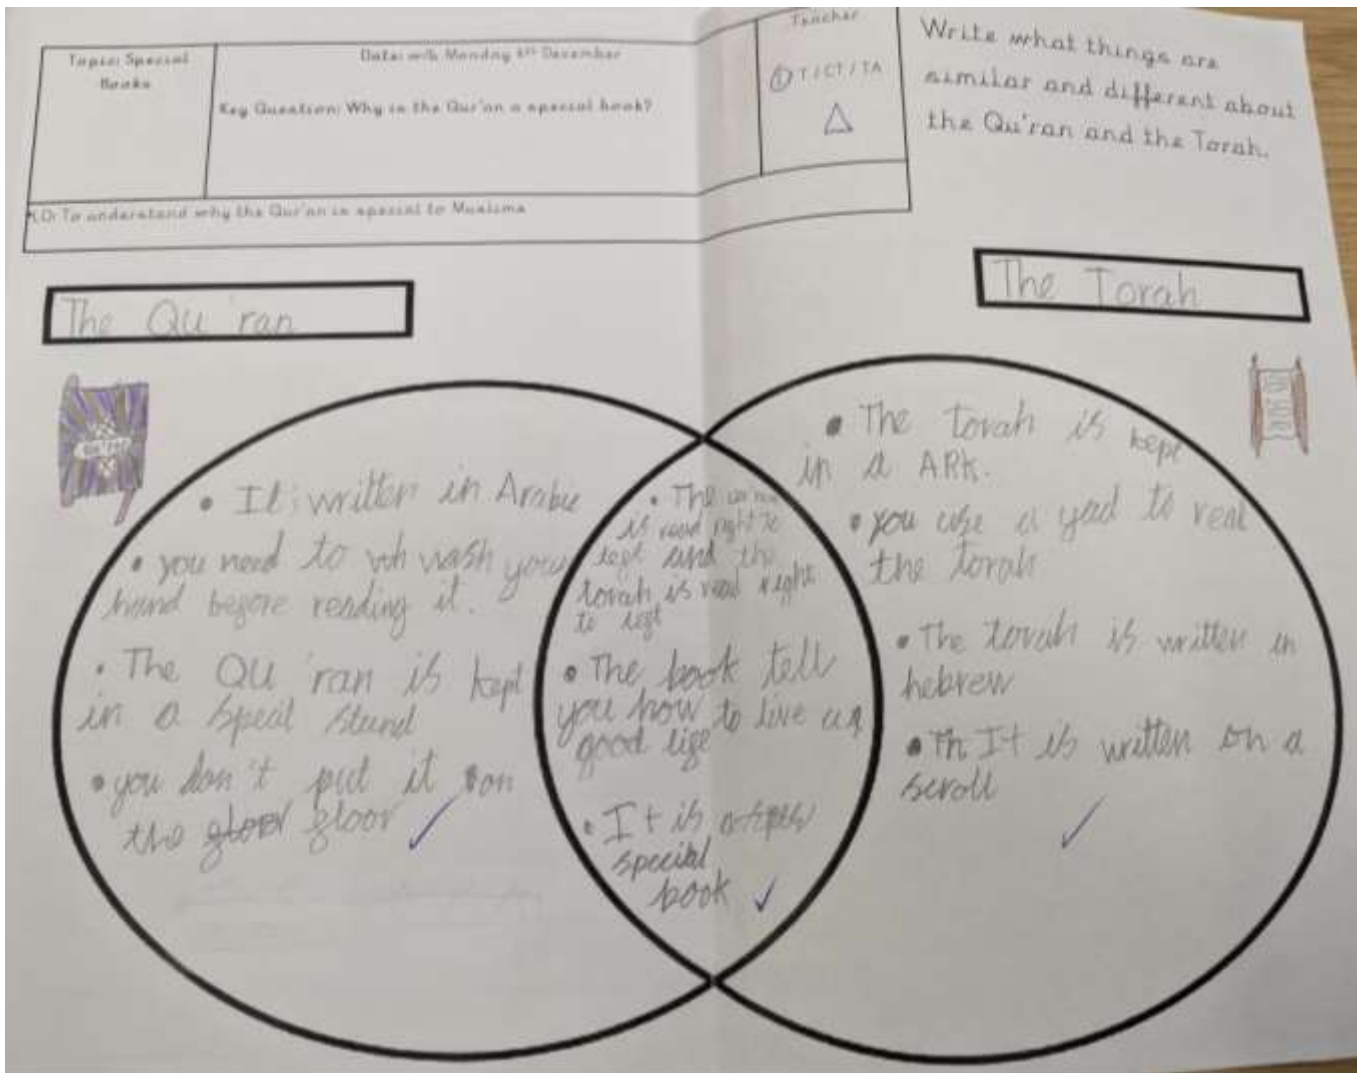 Topic: Special
Books
Date: w/b Monday 4th December
Key Question: Why is the Qur'an a special book?
Teacher
① T / CT / TA
LO: To understand why the Qur'an is special to Muslims
Write what things are
similar and different about
the Qu'ran and the Torah.
The Qu'ran
The Torah
• It; written in Arabic
• you need to wh wash your
hand before reading it.
• The Qu'ran is kept
in a speail stand
• you don't put it on
the floor floor
• The
is read right to
left and the
torah is read right
to left
• The book tell
you how to live a
good life
• It is
special
book
• The torah is kept
in a ARK.
• you use a yad to read
the torah
• The torah is written in
hebrew
• Th It is written on a
scroll